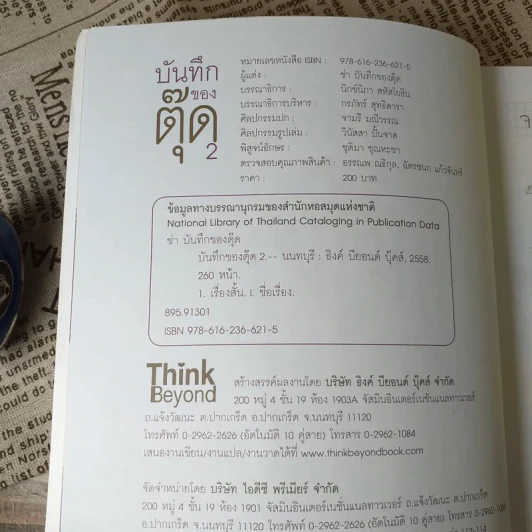 บันทึก
ของ
ตุ๊ด
2
หมายเลขหนังสือ ISBN : 978-616-236-621-5
ผู้แต่ง : ช่า บันทึกของตุ๊ด
บรรณาธิการ : นิกข์นิภา สหัสโยธิน
บรรณาธิการบริหาร : กรภัทร์ สุทธิดารา
ศิลปกรรมปก : จามรี มณีวรรณ
ศิลปกรรมรูปเล่ม : วินัสสา ปั้นจาด
พิสูจน์อักษร : ชุติมา ชุณหะชา
ตรวจสอบคุณภาพสินค้า : อรรณพ ณธิกุล, ฉัตรชนก แก้วจันทร์
ราคา : 200 บาท
ข้อมูลทางบรรณานุกรมของสำนักหอสมุดแห่งชาติ
National Library of Thailand Cataloging in Publication Data
ช่า บันทึกของตุ๊ด
บันทึกของตุ๊ด 2.-- นนทบุรี : ธิงค์ บียอนด์ บุ๊คส์, 2558.
260 หน้า.
1. เรื่องสั้น. I. ชื่อเรื่อง.
895.91301
ISBN 978-616-236-621-5
Think
Beyond
สร้างสรรค์ผลงานโดย บริษัท ธิงค์ บียอนด์ บุ๊คส์ จำกัด
200 หมู่ 4 ชั้น 19 ห้อง 1903A จัสมินอินเตอร์เนชั่นแนลทาวเวอร์
ถ.แจ้งวัฒนะ ต.ปากเกร็ด อ.ปากเกร็ด จ.นนทบุรี 11120
โทรศัพท์ 0-2962-2626 (อัตโนมัติ 10 คู่สาย) โทรสาร 0-2962-1084
เสนองานเขียน/งานแปล/งานวาดได้ที่ www.thinkbeyondbook.com
จัดจำหน่ายโดย บริษัท ไอดีซี พรีเมียร์ จำกัด
200 หมู่ 4 ชั้น 19 ห้อง 1901 จัสมินอินเตอร์เนชั่นแนลทาวเวอร์ ถ.แจ้งวัฒนะ
อ.ปากเกร็ด จ.นนทบุรี 11120 โทรศัพท์ 0-2962-2626 (อัตโนมัติ 10 คู่สาย)